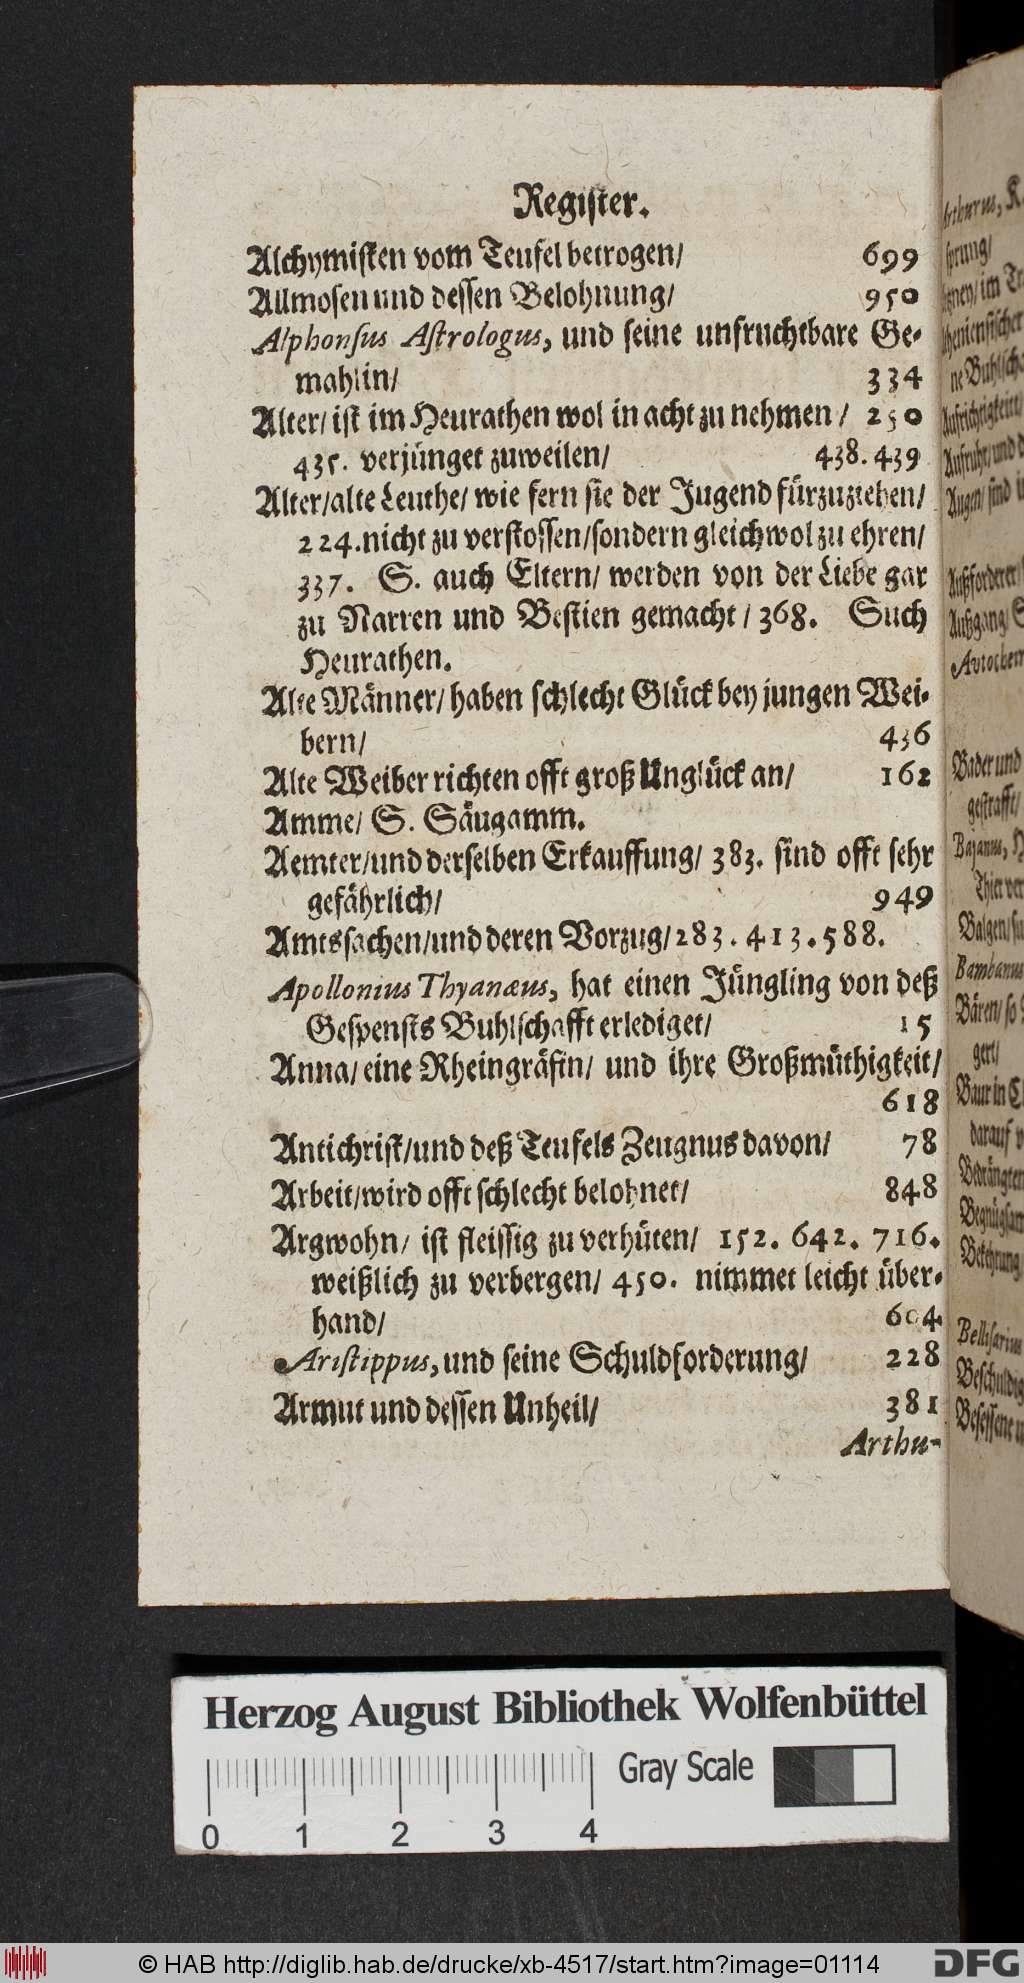 Register.
Alchymisten vom Teufel betrogen/ 699
Allmosen und dessen Belohnung/ 950
Alphonsus Astrologus, und seine unfruchtbare Ge-
mahlin/ 334
Alter/ ist im Heurathen wol in acht zu nehmen/ 250
435. verjünget zuweilen/ 438. 439
Alter/alte Leuthe/ wie fern sie der Jugend fürzuziehen/
224. nicht zu verstossen/sondern gleichwol zu ehren/
337. S. auch Eltern/ werden von der Liebe gar
zu Narren und Bestien gemacht/ 368. Such
Heurathen.
Alte Männer/ haben schlecht Glück bey jungen Wei-
bern/ 436
Alte Weiber richten offt groß Unglück an/ 162
Amme/ S. Säugamm.
Aemter/und derselben Erkauffung/ 383. sind offt sehr
gefährlich/ 949
Amtssachen/und deren Vorzug/ 283. 413. 588.
Apollonius Thyanæus, hat einen Jüngling von deß
Gespensts Buhlschafft erlediget/ 15
Anna/ eine Rheingräfin/ und ihre Großmüthigkeit/
618
Antichrist/und deß Teufels Zeugnus davon/ 78
Arbeit/wird offt schlecht belohnet/ 848
Argwohn/ ist fleissig zu verhüten/ 152. 642. 716.
weißlich zu verbergen/ 450. nimmet leicht über-
hand/ 604
Aristippus, und seine Schuldforderung/ 228
Armut und dessen Unheil/ 381
Arthu-
Arthurus, K
sprung/
im
ne Buhlsch
Augen/ sind
Bader und
gestrafft/
Bajanus,
Thier ver
Balgen/
Bambanus
Bären/ so
gert/
Baur in
darauf
Bedrängten
Bekehrung
Bellisarius
Beschuldig
Besessene
Herzog August Bibliothek Wolfenbüttel
Gray Scale
0 1 2 3 4
© HAB http://diglib.hab.de/drucke/xb-4517/start.htm?image=01114
DFG